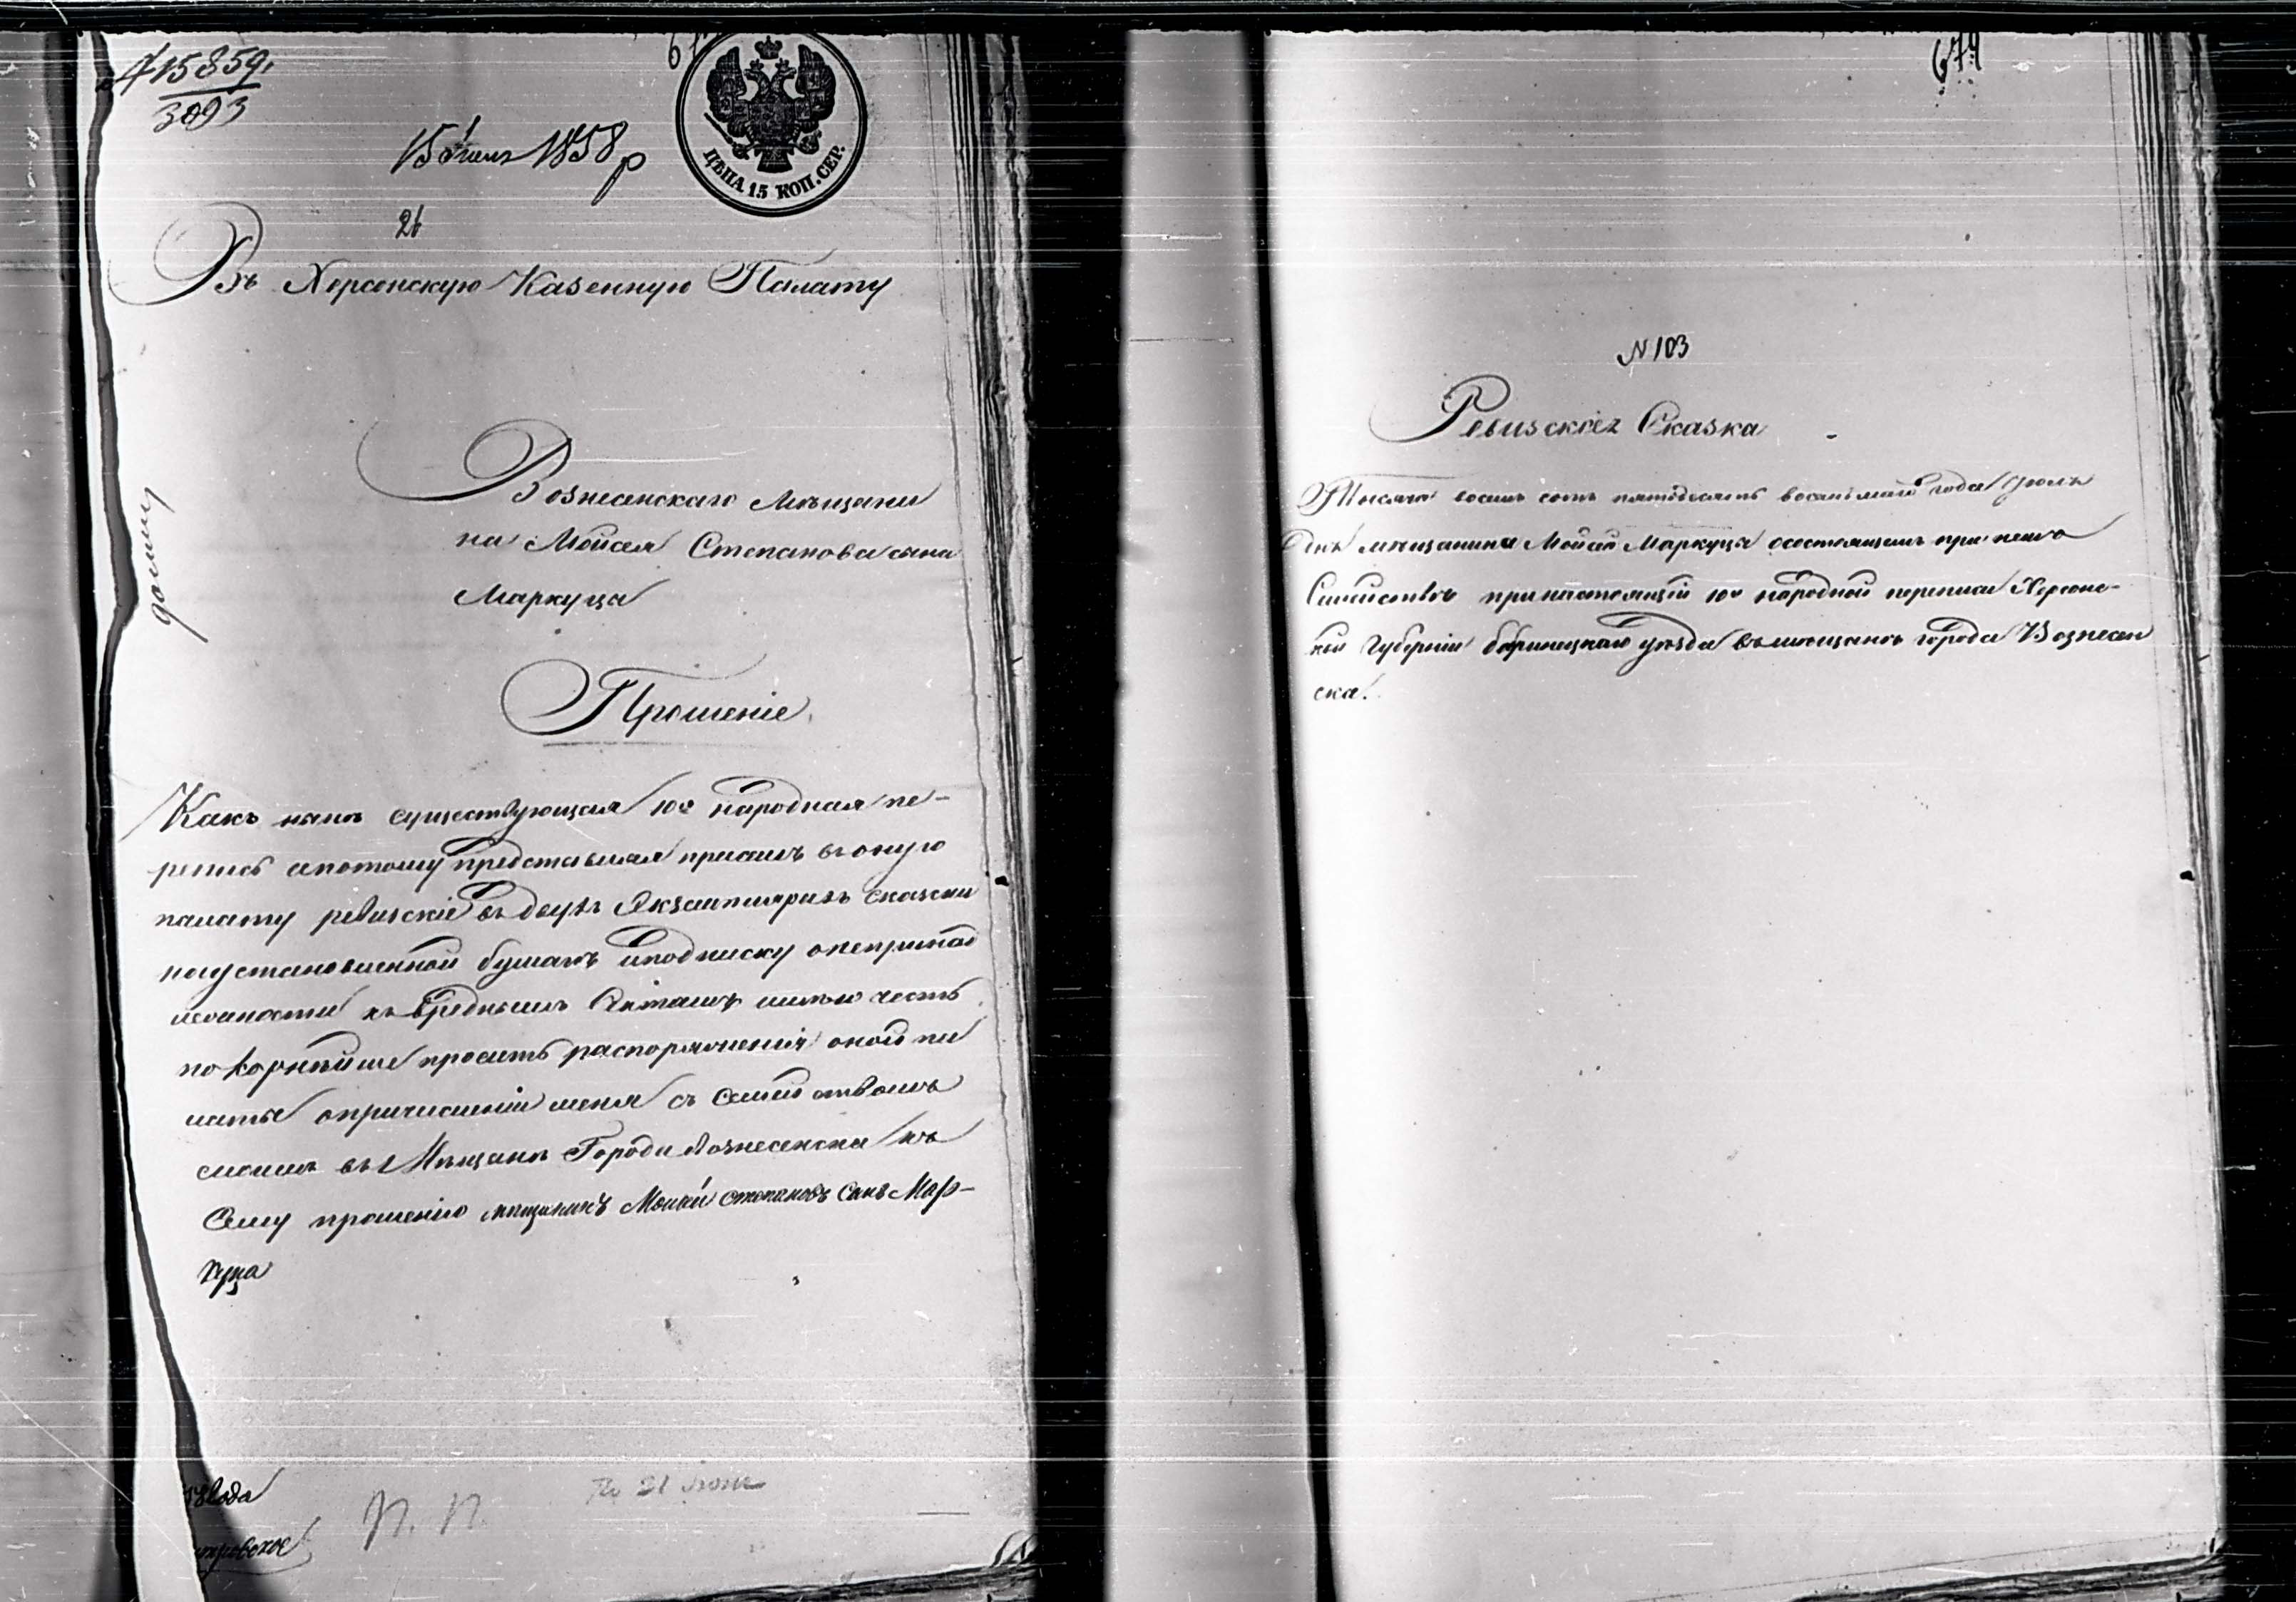 15859
3093
15 Июля 1858 р
21
ЦѢНА 15 КОП. СЕР.
Въ Херсонскую Казенную Палату
Вознесенскаго Мѣщани
на Мойсея Степанова сына
Маркуца
Прошеніе
Какъ нынѣ существующая 10я народная пе-
репись апотому представляя присемъ въ оную
палату ревизскіе въ двухъ Экземплярахъ сказки
наустановленной бумагѣ иподписку онепринад
лежности къ вреднымъ Сектамъ имѣю честь
покорнѣйше просить распоряженія оной па
латы опричисленіи меня съ семействомъ
моимъ въ Мѣщане Города Вознесенска къ
Сему прошенію мѣщанинъ Мойсей Степановъ Сынъ Мар-
куца
674
N 103
Ревизская Сказка
Тысяча восемь сотъ пятдесятъ восьмаго года Іюля
дня мѣщанина Мойсей Маркуца осостоящемъ при немъ
Семействѣ принастоящей 10й народной переписи Херсонс-
кой Губерніи бобринецкаго уѣзда въ мѣщане города Вознесен
ска.